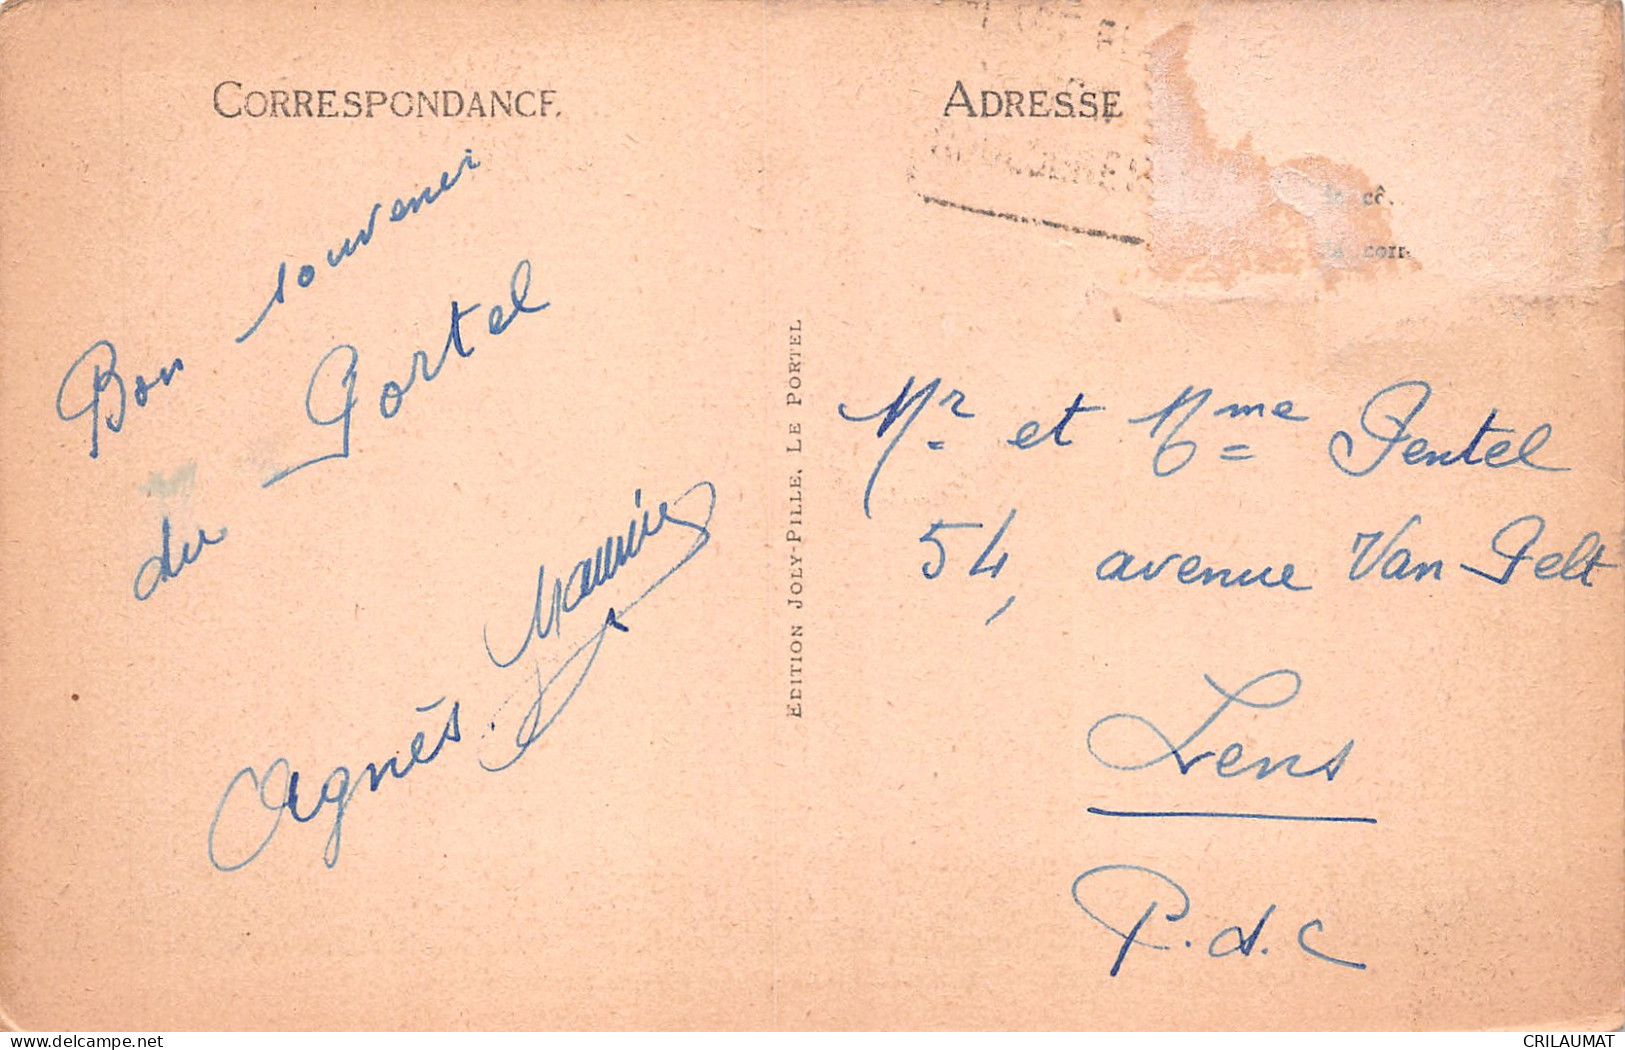 CORRESPONDANCE
Bon souvenir
du Portel
Agnès.
EDITION JOLY-PILLE, LE PORTEL
ADRESSE
cô.
corr.
Mr et Mme Pentel
54, avenue Van Pelt
Lens
P.d.C
delcampe.net
CRILAUMAT